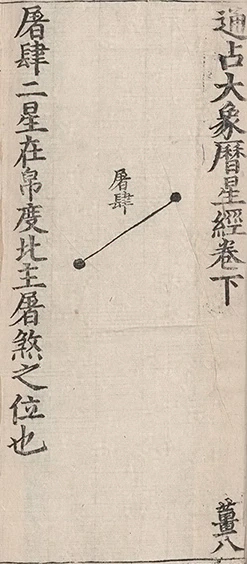 通占大象曆星經卷下
薑八
屠肆
屠肆二星在帛度北主屠煞之位也